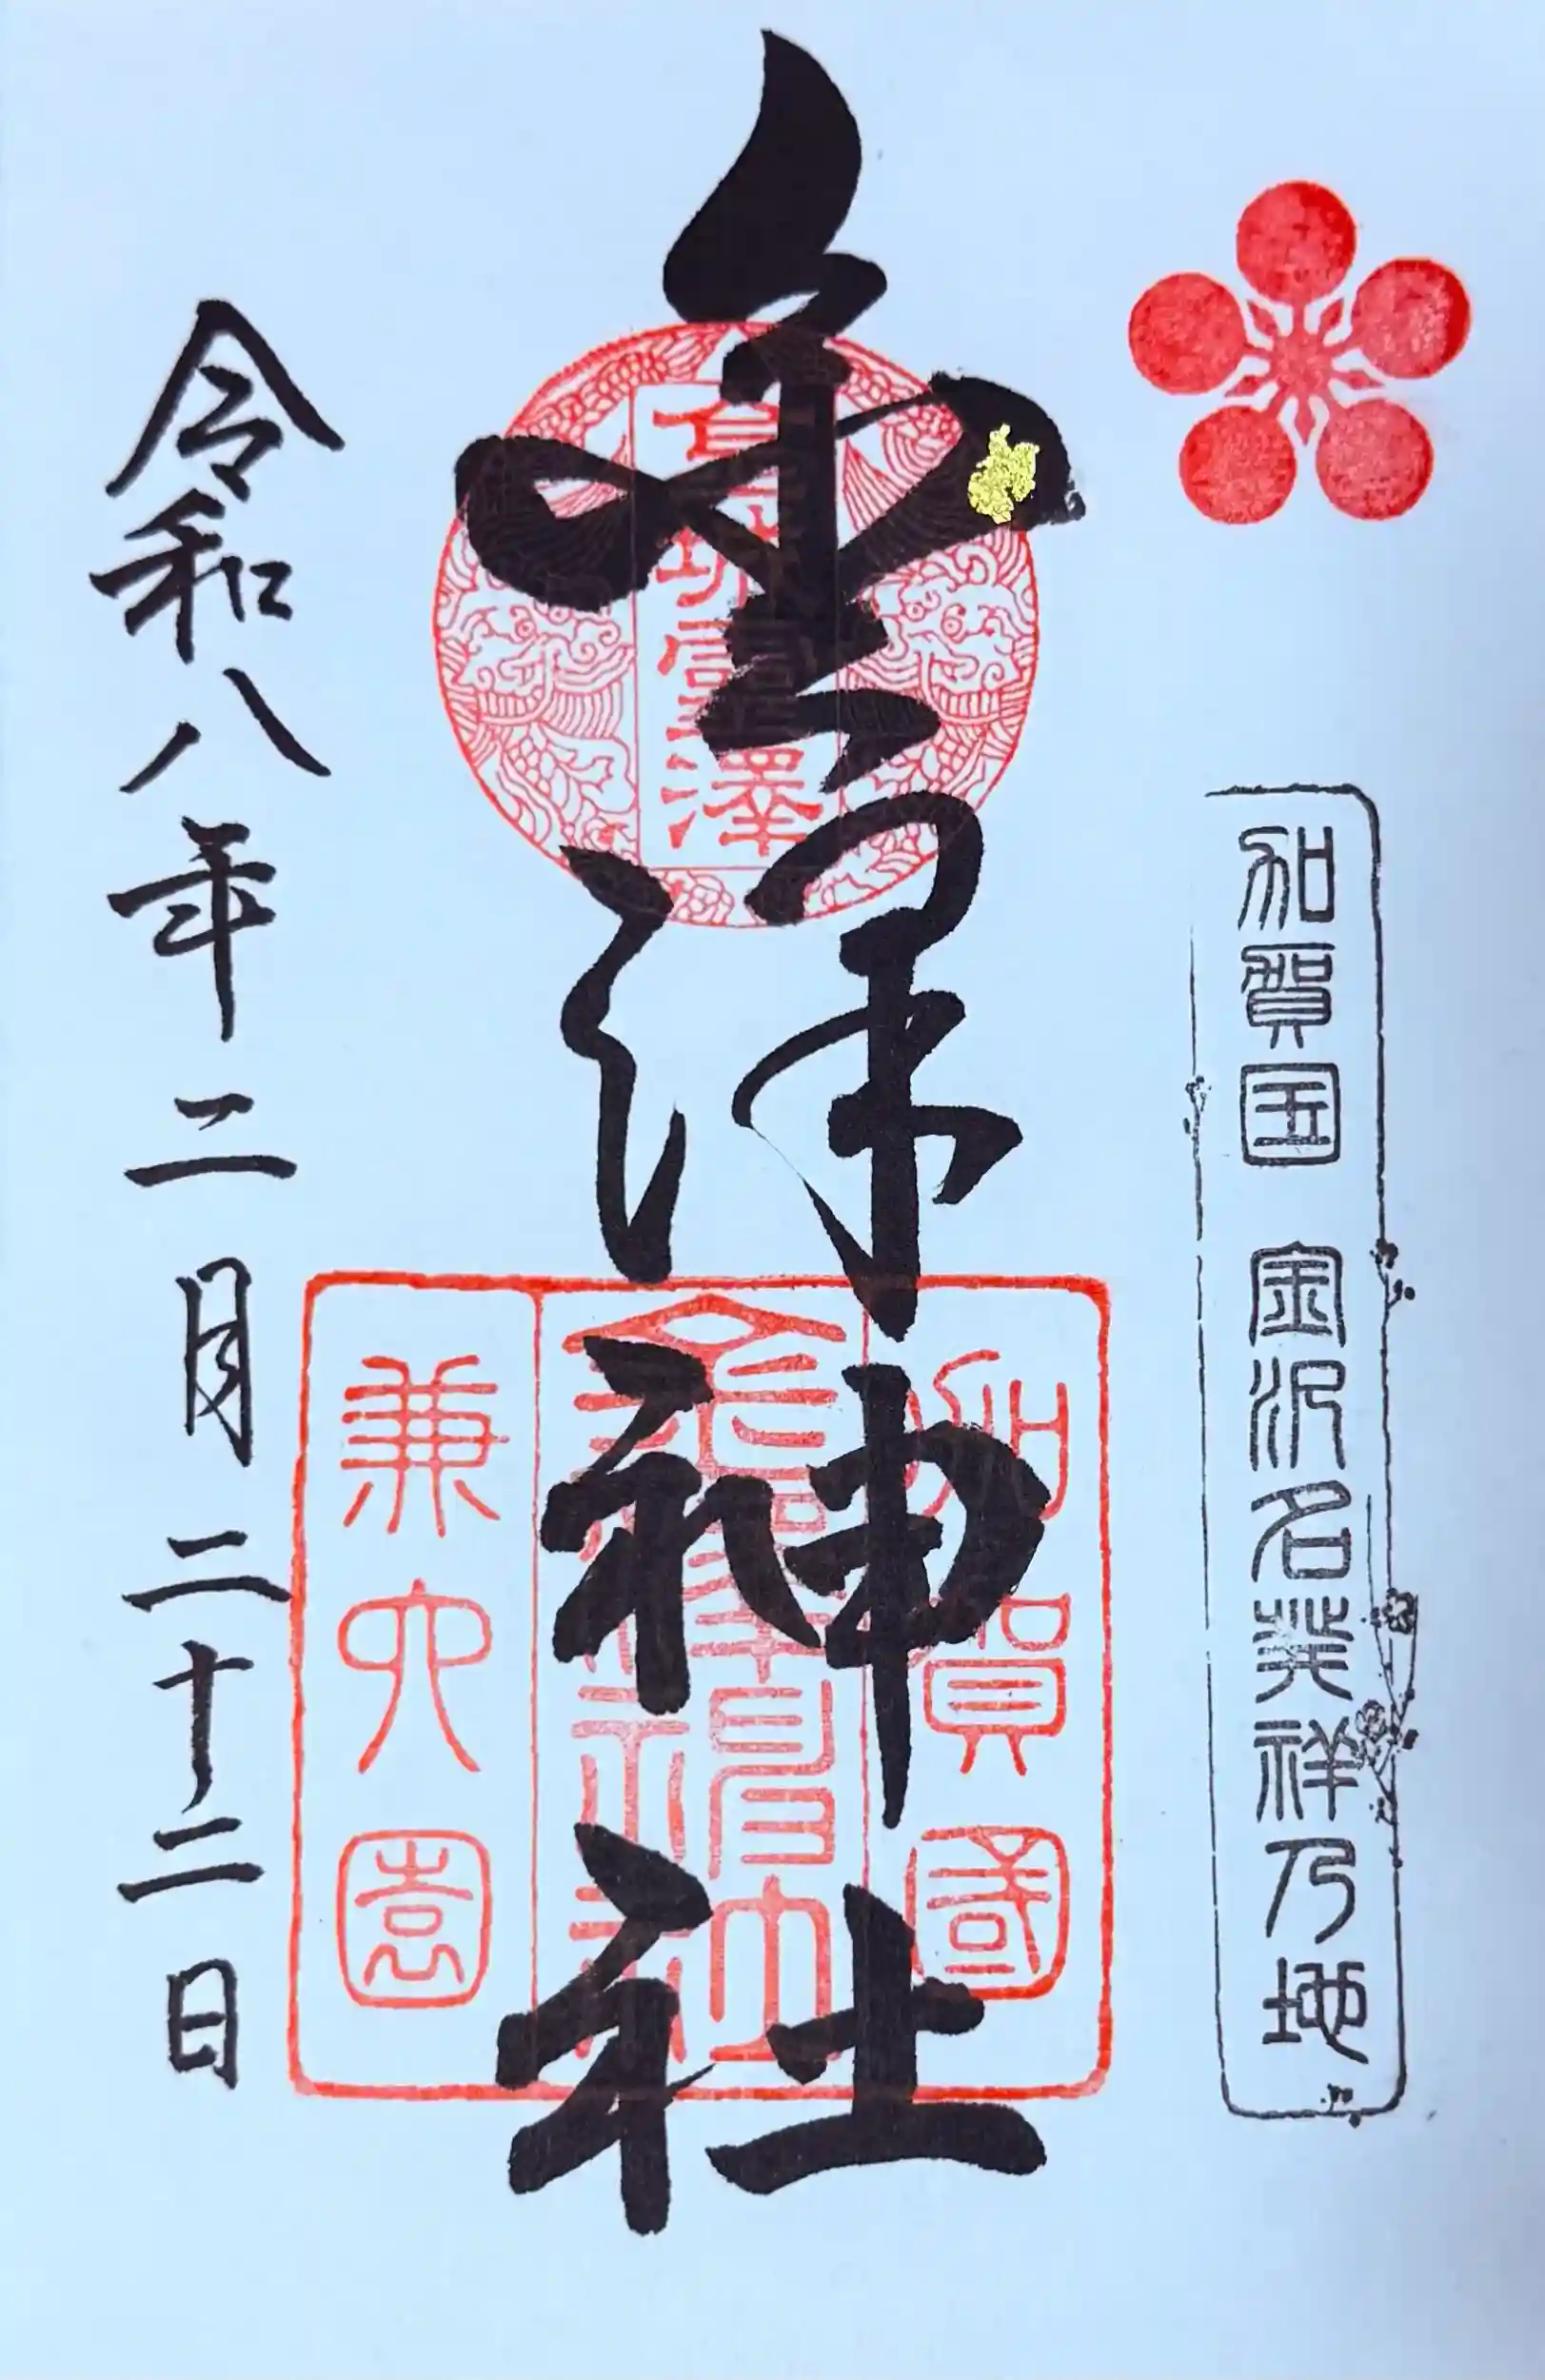 加賀国 金沢名発祥乃地
金澤神社
加賀國
金澤神社
兼六園
令和八年二月二十二日